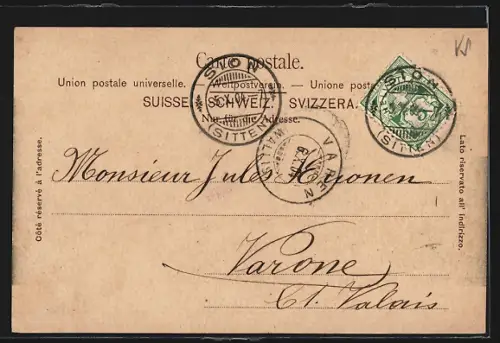 Carte postale.
Union postale universelle. — Weltpostverein. — Unione postale
SUISSE. SCHWEIZ. SVIZZERA.
Nur für die Adresse.
SION
(SITTEN)
SION
(SITTEN)
VAREN
WALLIS
Côté réservé à l'adresse.
Lato riservato all' indirizzo.
Monsieur Jules
Varone
Ct. Valais